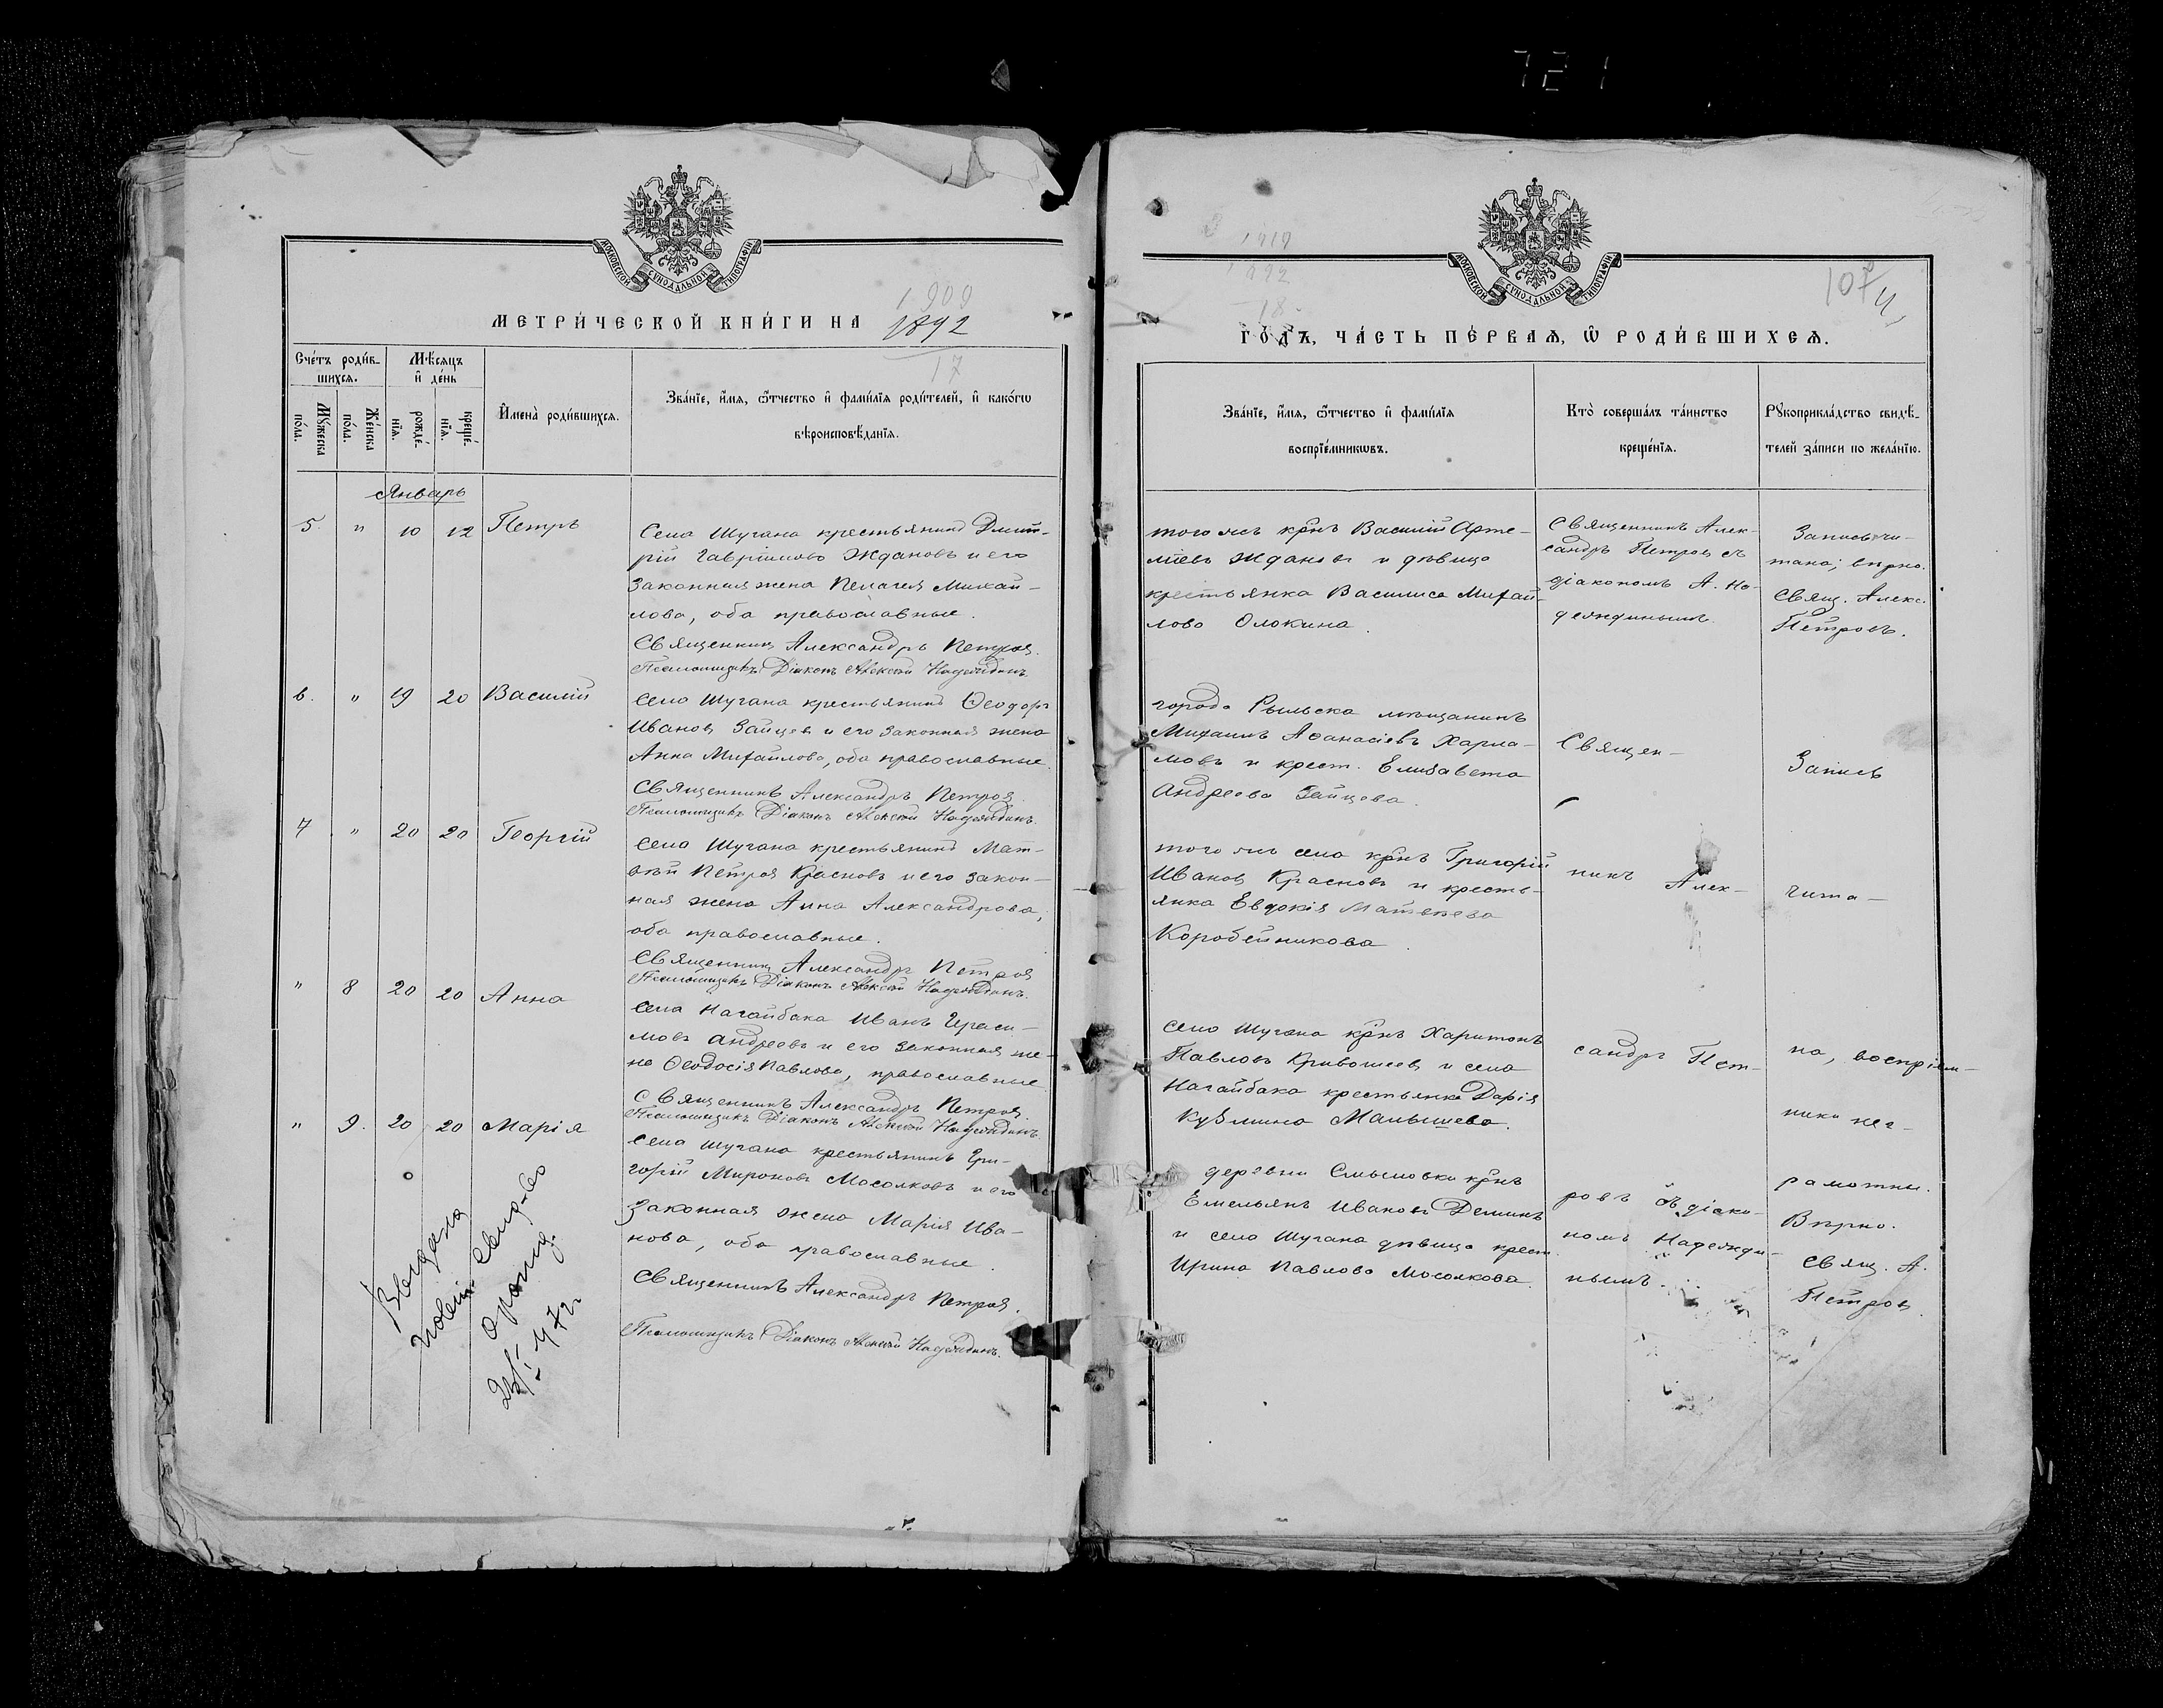 721
МОСКОВСКОЙ СѴНОДАЛЬНОЙ ТИПОГРАФІИ
1909
МЕТРИ́ЧЕСКОЙ КНИ́ГИ НА 1892
17
Сче́тъ роди́в-
шихсѧ.
Мѣ́сяцъ
и҆ де́нь
Мꙋ́жеска
по́ла.
Же́нска
по́ла.
рожде́-
нїѧ.
креще́-
нїѧ.
И҆мена̀ роди́вшихсѧ.
Зва́нїе, и҆́мѧ, ѻ҆́тчество и҆ фами́лїѧ роди́телей, и҆ како́гѡ
вѣроисповѣ́данїѧ.
Январь
5. " 10 12 Петръ
Села Шугана крестьянинъ Дмит-
рій Гавріиловъ Ждановъ и его
законная жена Пелагея Михай-
лова, оба православные.
Священникъ Александръ Петровъ.
Псаломщикъ Діаконъ Алексѣй Надеждинъ.
6. " 19 20 Василій
Села Шугана крестьянинъ Ѳеодоръ
Ивановъ Зайцевъ и его законная жена
Анна Михайлова, оба православные.
Священникъ Александръ Петровъ.
Псаломщикъ Діаконъ Алексѣй Надеждинъ.
7 " 20 20 Георгій
Села Шугана крестьянинъ Мат-
вѣй Петровъ Красновъ и его закон-
ная жена Анна Александрова,
оба православные.
Священникъ Александръ Петровъ
Псаломщикъ Діаконъ Алексѣй Надеждинъ.
" 8 20 20 Анна
Села Нагайбака Иванъ Гераси-
мовъ Андреевъ и его законная же-
на Ѳеодосія Павлова, православные
Священникъ Александръ Петровъ.
Псаломщикъ Діаконъ Алексѣй Надеждинъ.
" 9. 20 20 Марія
Села Шугана крестьянинъ Гри-
горій Мироновъ Мосолковъ и его
законная жена Марія Ива-
нова, оба православные.
Священникъ Александръ Петровъ.
Псаломщикъ Діаконъ Алексѣй Надеждинъ.
Выдана
72г
МОСКОВСКОЙ СѴНОДАЛЬНОЙ ТИПОГРАФІИ
1910
1892
18
107
ГО́ДЪ, ЧА́СТЬ ПЕ́РВАѦ, Ѡ҆ РОДИ́ВШИХСѦ.
Зва́нїе, и҆́мѧ, ѻ҆́тчество и҆ фами́лїѧ
воспрїе́мникѡвъ.
Кто̀ соверша́лъ та́инство
креще́нїѧ.
Рꙋкоприкла́дство свидѣ́-
телей за́писи по жела́нїю.
того же крнъ Василій Арте-
міевъ Ждановъ и дѣвица
крестьянка Василиса Михай-
лова Олокина.
Священникъ Алек-
сандръ Петровъ съ
діакономъ А. На-
деждинымъ.
Запись чи-
тана; вѣрно.
Свящ. Алекс.
Петровъ.
города Рыльска мѣщанинъ
Михаилъ Аѳанасіевъ Харла-
мовъ и крест. Елизавета
Андреева Зайцева.
того же села крнъ Григорій
Ивановъ Красновъ и кресть-
янка Евдокія Матвѣева
Коробейникова.
села Шугана крнъ Харитонъ
Павловъ Кривошеевъ и села
Нагайбака крестьянка Дарія
Кузмина Малышева.
деревни Смысловки крнъ
Емельянъ Ивановъ Деминъ
и села Шугана дѣвица крест.
Ирина Павлова Мосолкова.
Священ-
никъ Алек-
сандръ Пет-
ровъ съ діако-
номъ Надежди-
нымъ.
Запись
чита-
на, воспріем-
ники нег-
рамотны.
Вѣрно.
Свящ. А.
Петровъ.